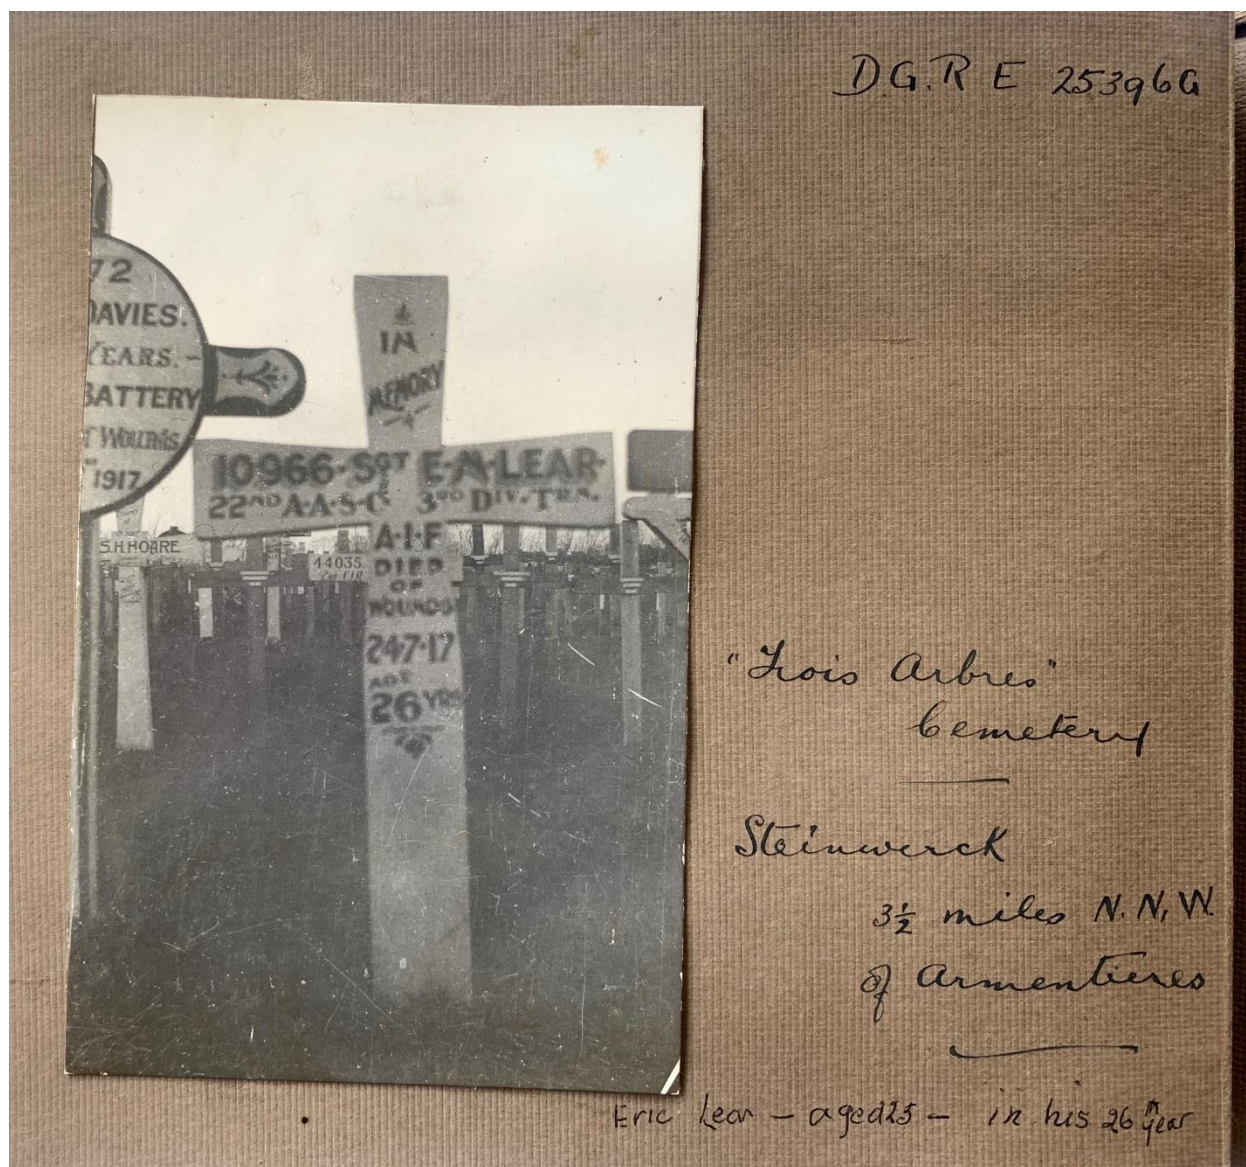 D.G.R E 25396G
72
DAVIES.
YEARS.-
BATTERY
OF WOUNDS
1917
IN
MEMORY
10966·SGT E·M·LEAR·
22ND A·A·S·C· 3RD DIV·TRN.
A·I·F
DIED
OF
WOUNDS
24·7·17
AGE
26 YRS
S.H.HOARE
14035
"Trois Arbres"
Cemetery
Steinwerck
3½ miles N.N.W.
of Armentieres
Eric Lear – aged 25 – in his 26th year